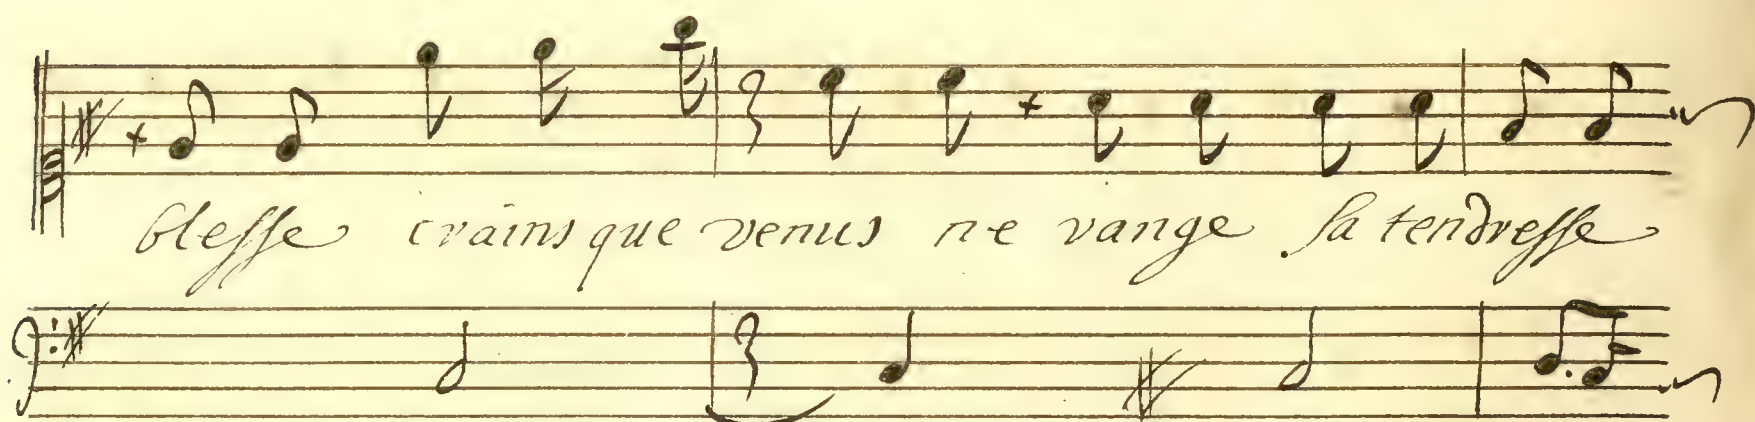 blesse crains que venus ne vange sa tendresse